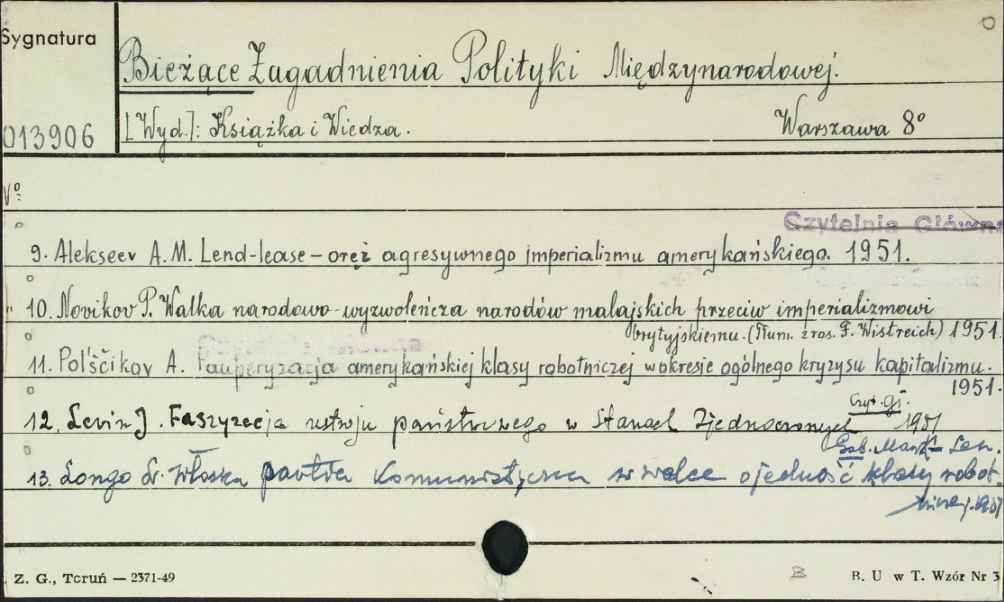 Sygnatura
Bieżące Zagadnienia Polityki Międzynarodowej.
013906
[Wyd.]: Książka i Wiedza. Warszawa 8°
Nº
Czytelnia Główna
9. Alekseev A. M. Lend-lease – oręż agresywnego imperializmu amerykańskiego. 1951.
10. Novikov P. Walka narodowo-wyzwoleńcza narodów malajskich przeciw imperializmowi
brytyjskiemu. (Tłum. z ros. F. Wistreich) 1951.
11. Pol'ščikov A. Pauperyzacja amerykańskiej klasy robotniczej w okresie ogólnego kryzysu kapitalizmu.
1951.
Czyt. Gł.
12. Levin J. Faszyzacja ustroju państwowego w Stanach Zjednoczonych 1951
Gab. Marks- Len.
13. Longo L. Włoska partia komunistyczna w walce o jedność klasy robot-
niczej. 1951
Z. G., Toruń — 2371-49
B. U w T. Wzór Nr 3